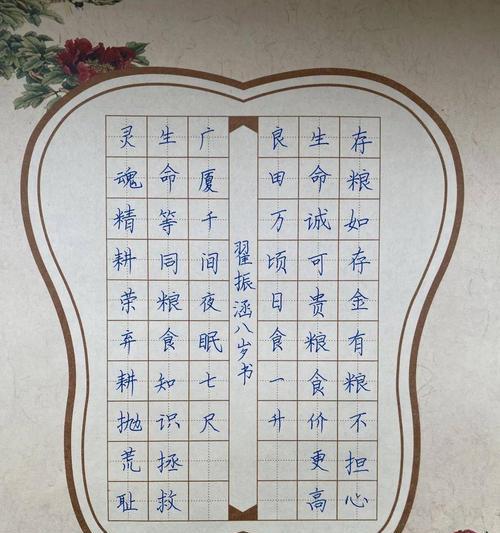 存粮如存金有粮不担心
生命诚可贵粮食价更高
良田万顷日食一升
翟振涵八岁书
广厦千间夜眠七尺
生命等同粮食知识拯救
灵魂精耕荣弃耕抛荒耻